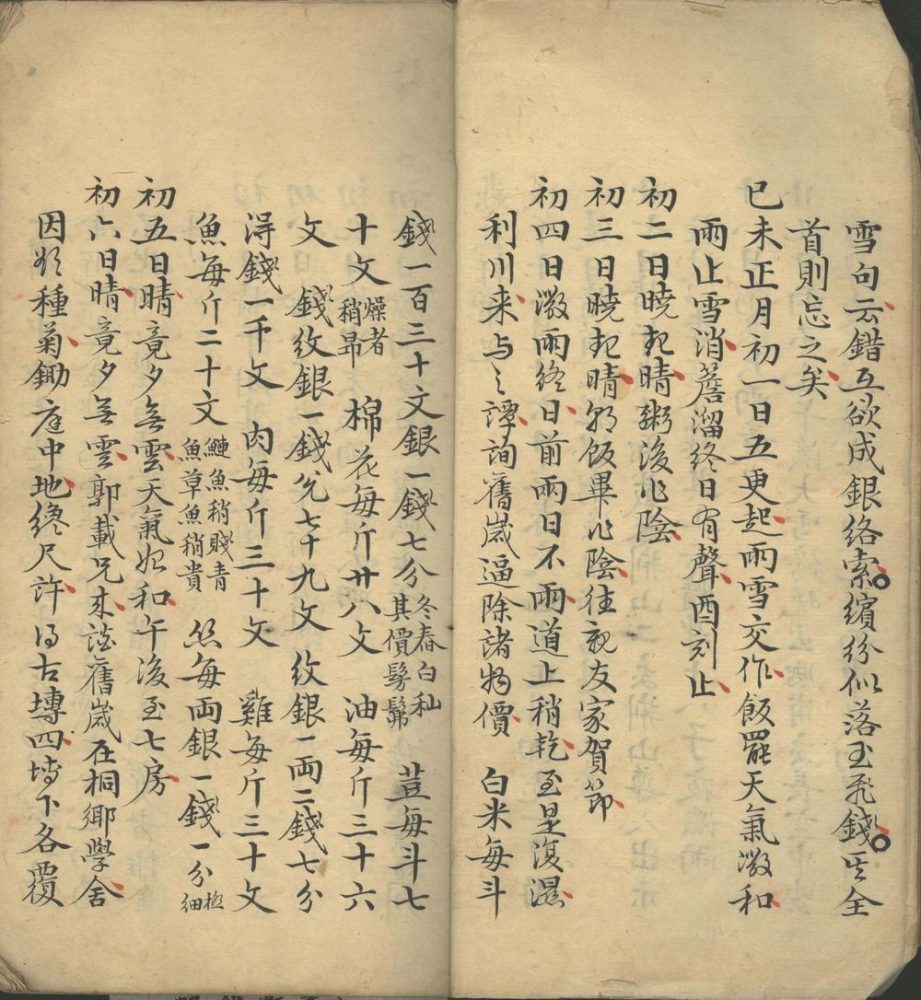 雪句云錯互欲成銀絡索繽紛似落玉飛錢其全
首則忘之矣
已未正月初一日五更起雨雪交作飯罷天氣微和
雨止雪消簷溜終日有聲酉刻止
初二日曉起晴粥後作陰
初三日曉起晴夘飯畢作陰往親友家賀節
初四日微雨終日前兩日不雨道上稍乾至是復濕
利川来与之譚詢舊歲逼除諸物價 白米每斗
錢一百三十文銀一錢七分冬舂白秈其價髣髴 荳每斗七
十文燥者稍昂 棉花每斤廿八文 油每斤三十六
文 錢紋銀一錢兌七十九文 紋銀一兩二錢七分
淂錢一千文 肉每斤三十文 雞每斤三十文
魚每斤二十文鰱魚稍賤青魚草魚稍貴 丝每兩銀一錢一分極細
初五日晴竟夕無雲天氣妍和午後至七房
初六日晴竟夕無雲郭載兄来談舊歲在桐鄉學舍
因欲種菊鋤庭中地纔尺許得古塼四塼下各覆